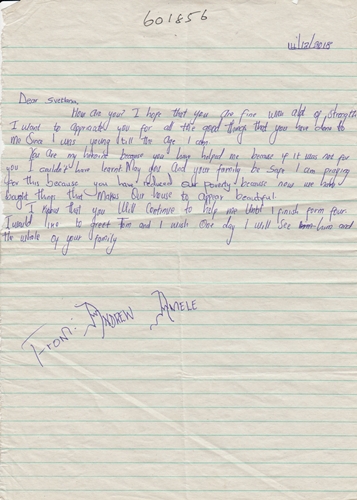 601856
11/12/2018
Dear Svetlana,
How are you? I hope that you are fine with a lot of strength
I want to appreciate you for all the good things that you have done to
Me Since I was young till the age I am.
You are my heroine because you have helped me because if it was not for
you I couldn't have learnt May you and your family be safe I am praying
for this because you have reduced our poverty because now we have
bought things that makes Our house to appear beautiful
I know that you Will Continue to help me Until I finish form four
I would like to greet Tom and I wish One day I will See him and
the whole of your family
From: ANDREW AMELE